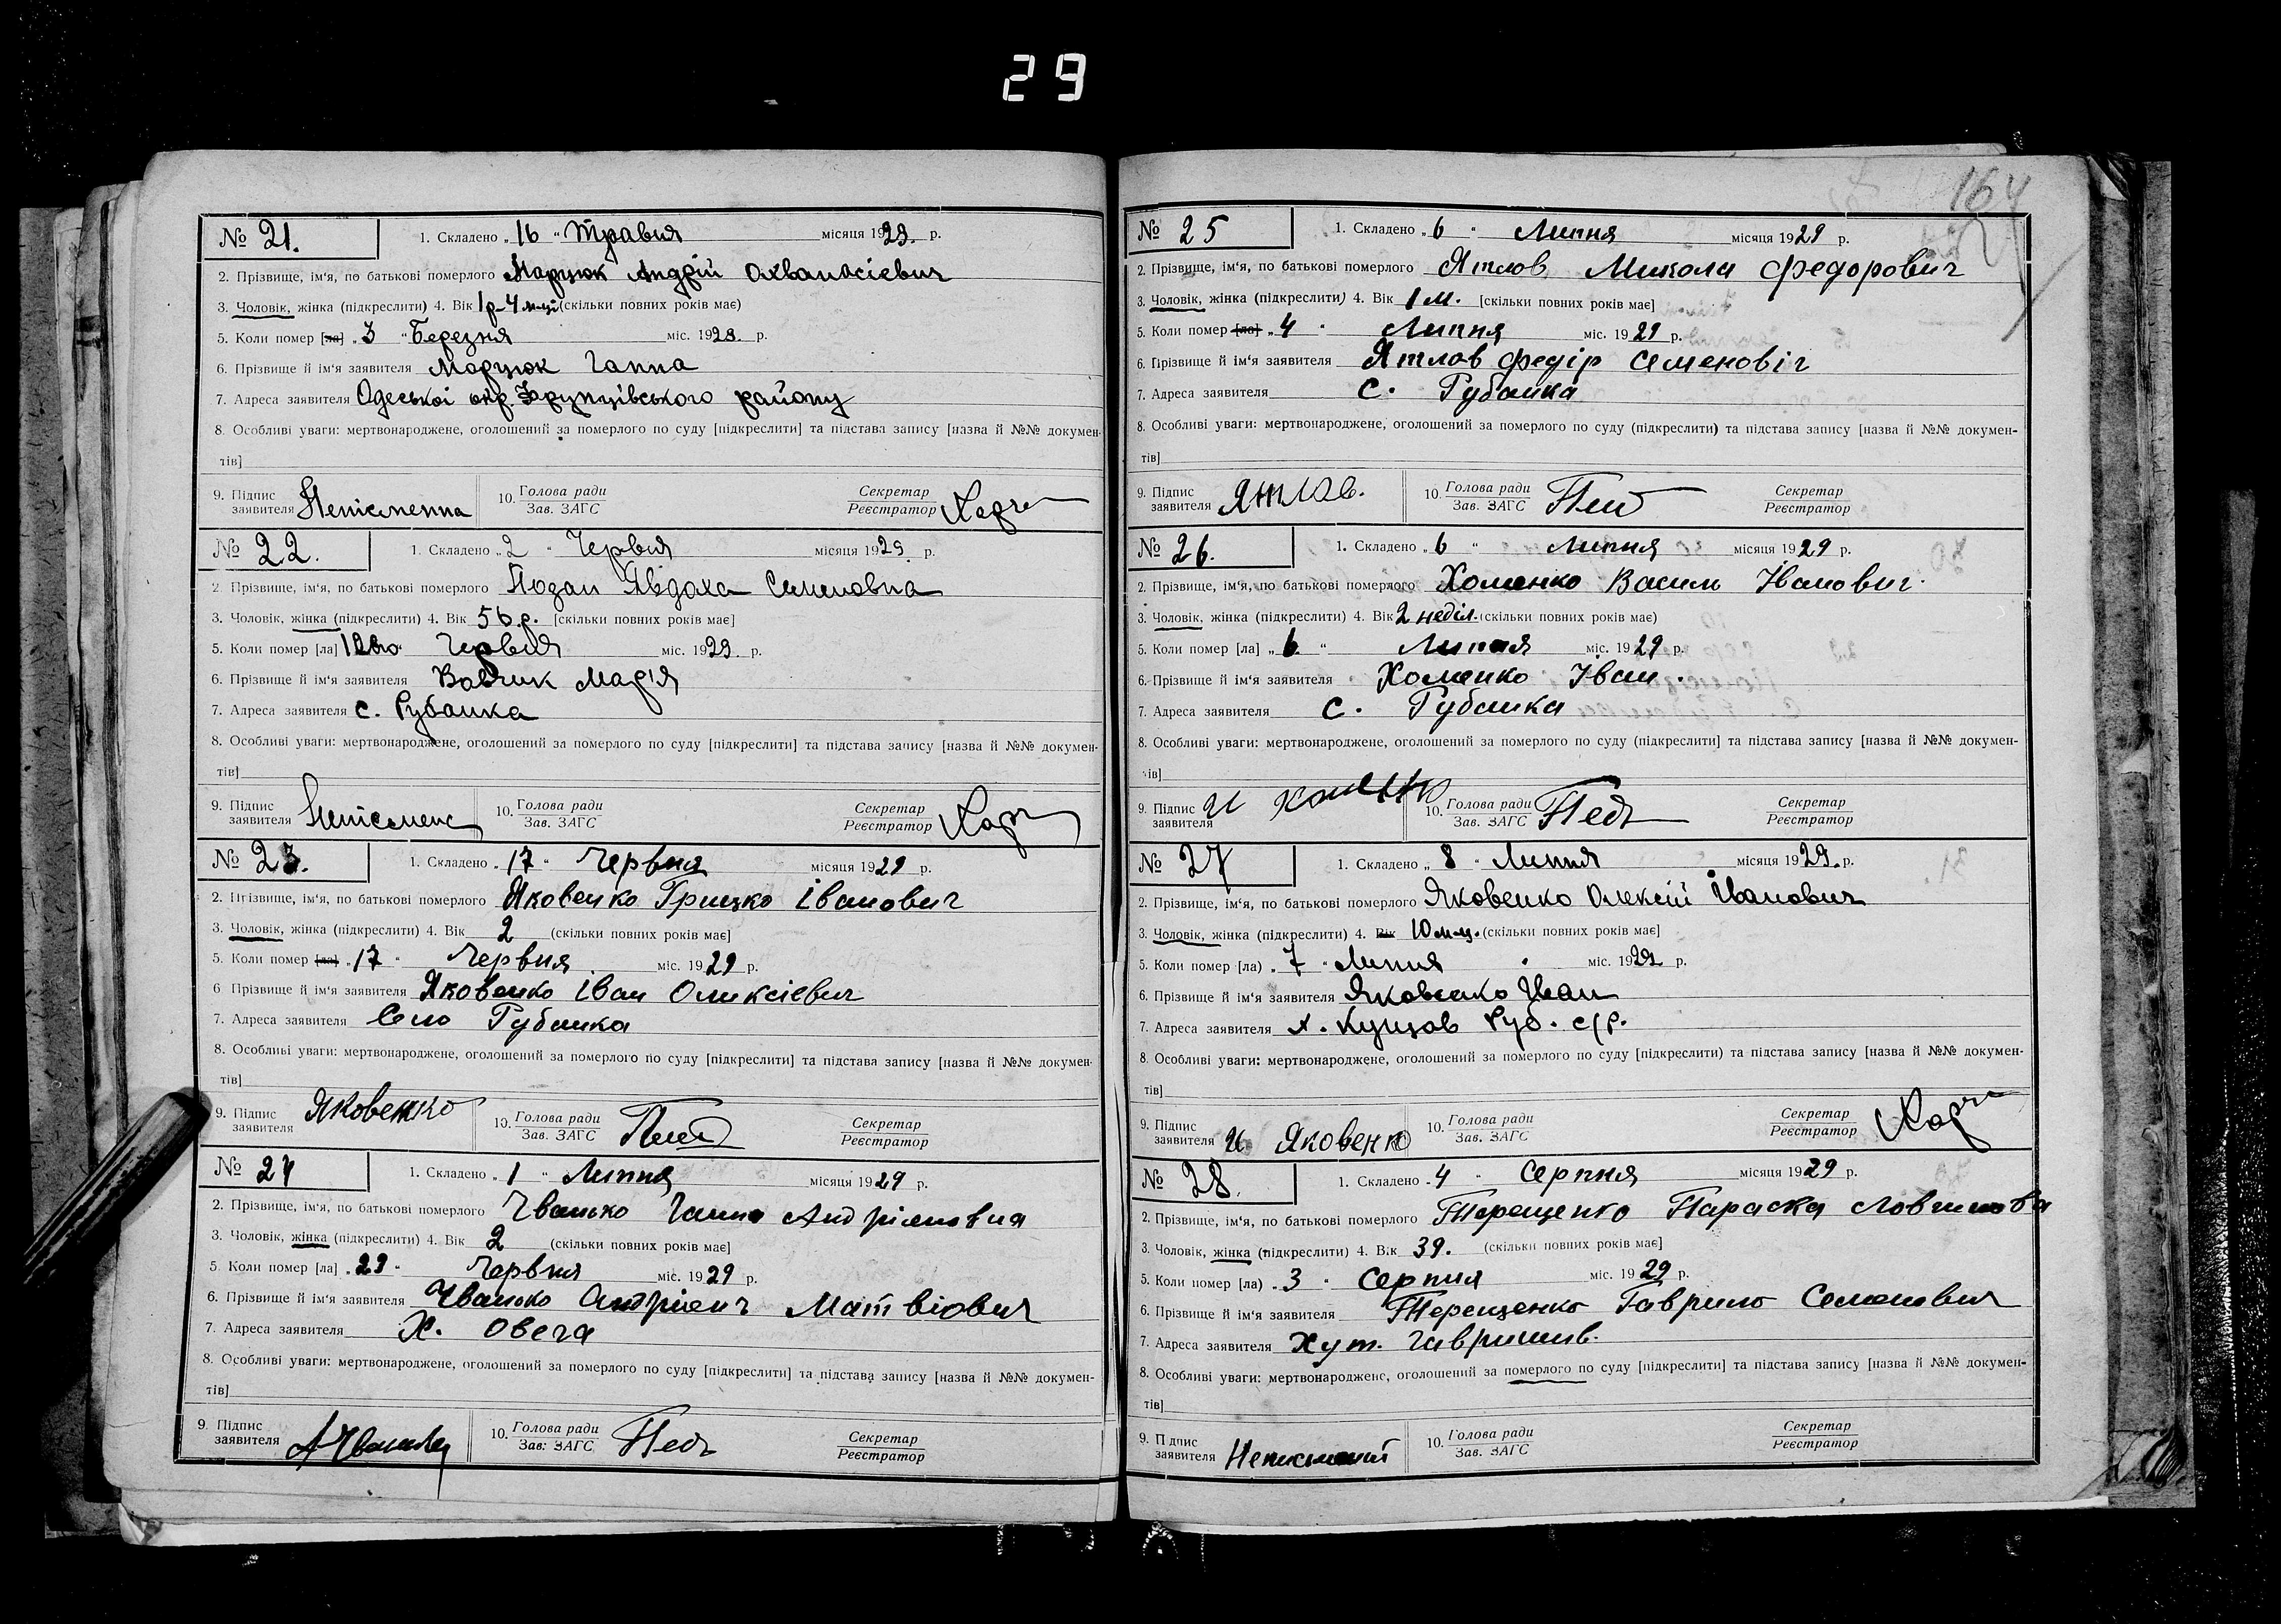 29
164
№ 21. 1. Складено „16“ Травня місяця 1929. р.
2. Прізвище, ім‘я, по батькові померлого Марцюк Андрій Ахванасієвич
3. Чоловік, жінка (підкреслити) 4. Вік 1 р–4 м-ці (скільки повних років має)
5. Коли помер [ла] „3“ Березня міс. 1928. р.
6. Прізвище й ім‘я заявителя Марцюк Ганна
7. Адреса заявителя Одеської окр. Фрунзівського району
8. Особливі уваги: мертвонароджене, оголошений за померлого по суду [підкреслити] та підстава запису [назва й №№ докумен-
тів]
9. Підпис заявителя Неписменна 10. Голова ради Зав. ЗАГС Секретар Реєстратор
№ 22. 1. Складено „2“ Червня місяця 1929 р.
2. Прізвище, ім‘я, по батькові померлого Явдоха Семеновна
3. Чоловік, жінка (підкреслити) 4. Вік 56 р. [скільки повних років має]
5. Коли помер [ла] Червня міс. 1929. р.
6. Прізвище й ім‘я заявителя Вовчик Мар'я
7. Адреса заявителя с. Рубанка
8. Особливі уваги: мертвонароджене, оголошений за померлого по суду [підкреслити] та підстава запису [назва й №№ докумен-
тів]
9. Підпис заявителя Неписмена 10. Голова ради Зав. ЗАГС Секретар Реєстратор
№ 23. 1. Складено „17“ Червня місяця 1929 р.
2. Прізвище, ім‘я, по батькові померлого Яковенко Грицко Іванович
3. Чоловік, жінка (підкреслити) 4. Вік 2 (скільки повних років має]
5. Коли помер [ла] „17“ Червня міс. 1929 р.
6 Прізвище й ім‘я заявителя Яковенко Іван Оликсієвич
7. Адреса заявителя Село Рубанка
8. Особливі уваги: мертвонароджене, оголошений за померлого по суду [підкреслити] та підстава запису [назва й №№ докумен-
тів]
9. Підпис заявителя Яковенко 10. Голова ради Зав. ЗАГС Секретар Реєстратор
№ 24 1. Складено „1“ Липня місяця 1929 р.
2. Прізвище, ім‘я, по батькові померлого Чванько Ганна Андріяновна
3. Чоловік, жінка (підкреслити) 4. Вік 2 (скільки повних років має]
5. Коли помер [ла] „29“ Червня міс. 1929 р.
6. Прізвище й ім‘я заявителя Чванько Андріенч Матвіович
7. Адреса заявителя Х. Овеча
8. Особливі уваги: мертвонароджене, оголошений за померлого по суду [підкреслити] та підстава запису [назва й №№ докумен-
тів]
9. Підпис заявителя 10. Голова ради Зав: ЗАГС Секретар Реєстратор
№ 25 1. Складено „6“ Липня місяця 1929 р.
2. Прізвище, ім‘я, по батькові померлого Ятлов Микола Федорович
3. Чоловік, жінка (підкреслити) 4. Вік 1 м. [скільки повних років має]
5. Коли помер [ла] „4“ Липня міс. 1929 р.
6. Прізвище й ім‘я заявителя Ятлов Федір Семеновіч
7. Адреса заявителя с. Рубанка
8. Особливі уваги: мертвонароджене, оголошений за померлого по суду (підкреслити) та підстава запису [назва й №№ докумен-
тів]
9. Підпис заявителя Ятлов. 10. Голова ради Зав. ЗАГС Секретар Реєстратор
№ 26. 1. Складено „6“ Липня місяця 1929 р.
2. Прізвище, ім‘я, по батькові померлого Хоменко Васил Іванович.
3. Чоловік, жінка (підкреслити) 4. Вік 2 неділ. (скільки повних років має)
5. Коли помер [ла] „6.“ Липня міс. 1929 р.
6. Прізвище й ім‘я заявителя Хоменко Іван.
7. Адреса заявителя с. Рубанка
8. Особливі уваги: мертвонароджене, оголошений за померлого по суду (підкреслити] та підстава запису [назва й №№ докумен-
тів]
9. Підпис заявителя И 10. Голова ради Зав. ЗАГС Секретар Реєстратор
№ 27 1. Складено „8“ Липня місяця 1929. р.
2. Прізвище, ім‘я, по батькові померлого Яковенко Олексій Іванович
3. Чоловік, жінка (підкреслити) 4. Вік 10 м-ц. (скільки повних років має]
5. Коли помер [ла) „7“ Липня міс. 1929 р.
6. Прізвище й ім‘я заявителя Яковенко Іван
7. Адреса заявителя х. Куцов Руб. с/р.
8. Особливі уваги: мертвонароджене, оголошений за померлого по суду [підкреслити) та підстава запису [назва й №№ докумен-
тів]
9. Підпис заявителя И Яковенко 10. Голова ради Зав. ЗАГС Секретар Реєстратор
№ 28. 1. Складено „4“ Серпня місяця 1929 р.
2. Прізвище, ім‘я, по батькові померлого Терещенко Параска
3. Чоловік, жінка (підкреслити) 4. Вік 39. (скільки повних років має]
5. Коли помер [ла) „3“ Серпня міс. 1929 р.
6. Прізвище й ім‘я заявителя Терещенко Гаврило Семенович
7. Адреса заявителя Хут. Гавришів.
8. Особливі уваги: мертвонароджене, оголошений за померлого по суду [підкреслити] та підстава запису [назва й №№ докумен-
тів]
9. Підпис заявителя Неписьмений 10. Голова ради Зав. ЗАГС Секретар Реєстратор